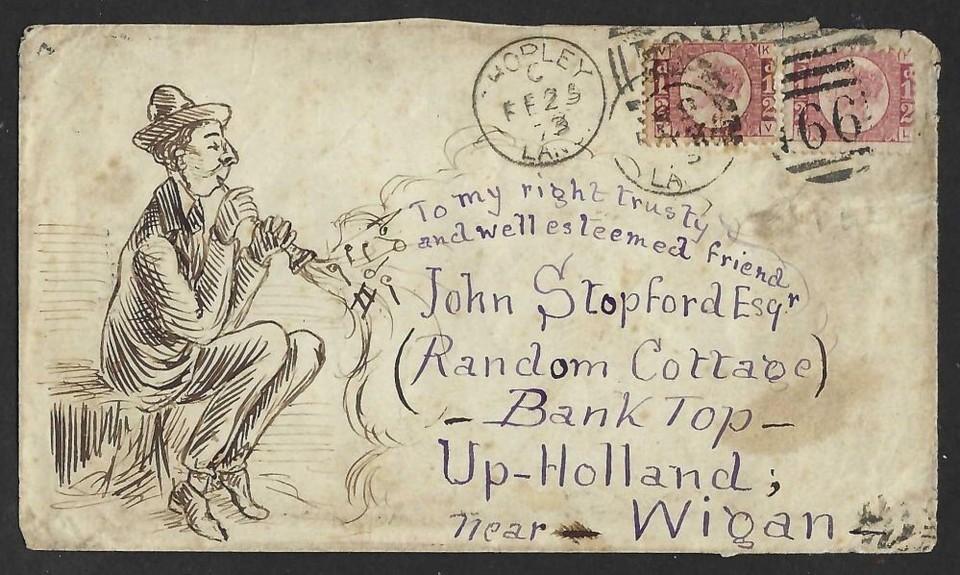 HORLEY
C
FE 25
73
LAN
466
To my right trusty
and well esteemed friend
John Stopford Esqr
(Random Cottage)
– Bank Top –
Up-Holland;
near – Wigan –